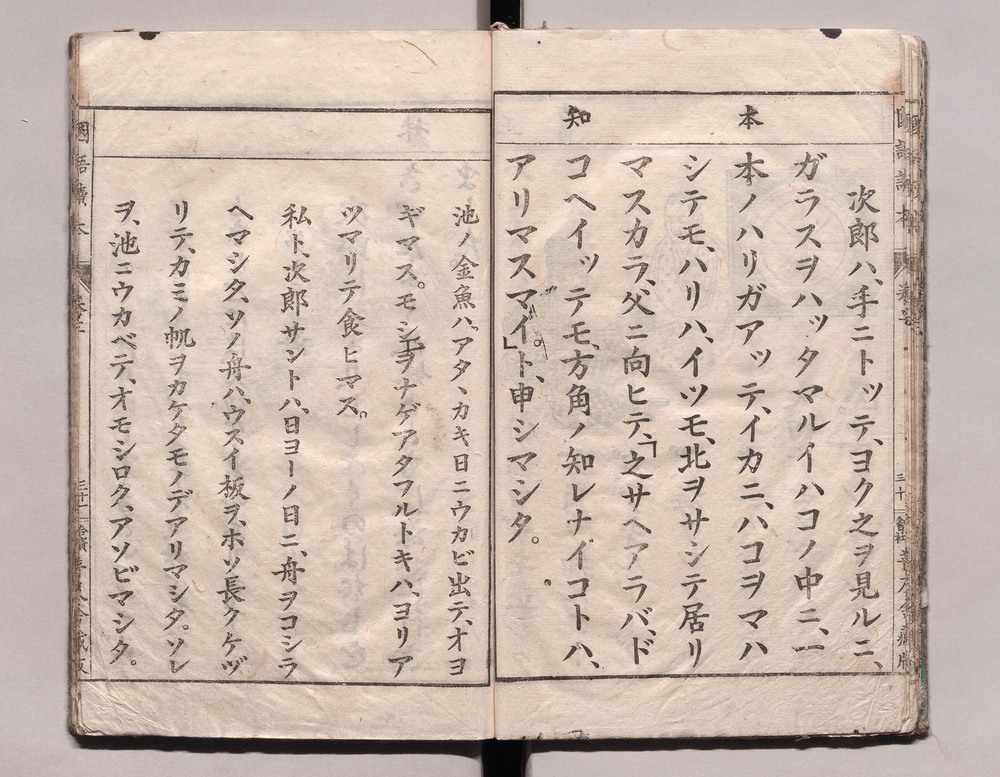 本
知
次郎ハ、手ニトッテ、ヨク之ヲ見ルニ、
ガラスヲハッタマルイハコノ中ニ、一
本ノハリガアッテ、イカニ、ハコヲマハ
シテモ、ハリハ、イツモ、北ヲサシテ居リ
マスカラ、父ニ向ヒテ、「之サヘアラバ、ド
コヘイッテモ、方角ノ知レナイコトハ、
アリマスマイ。」ト、申シマシタ。
池ノ金魚ハ、アタヽカキ日ニウカビ出テ、オヨ
ギマス。モシ、ヱヲナゲアタフルトキハ、ヨリア
ツマリテ食ヒマス。
私ト、次郎サントハ、日ヨーノ日ニ、舟ヲコシラ
ヘマシタ、ソノ舟ハ、ウスイ板ヲ、ホソ長クケヅ
リテ、カミノ帆ヲカケタモノデアリマシタ。ソレ
ヲ、池ニウカベテ、オモシロク、アソビマシタ。
國語讀本
卷三
三十一